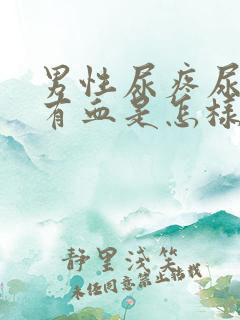 男性尿疼尿
有血是怎样
静里浅笑
未经同意禁止转载